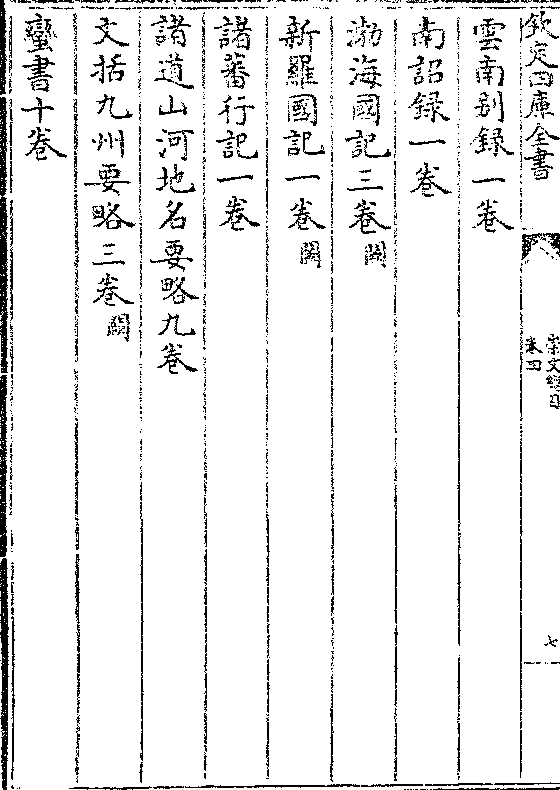 欽定四庫全書
崇文總目
卷四
七
雲南别録一卷
南詔録一卷
渤海國記三卷闕
新羅國記一卷闕
諸蕃行記一卷
諸道山河地名要略九卷
文括九州要略三卷闕
蠻書十卷